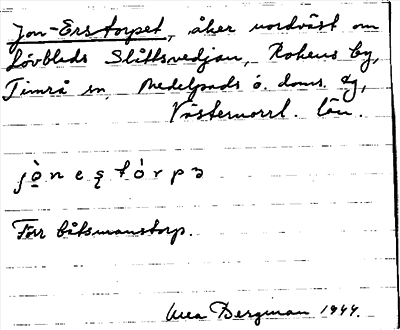 Jon-Erstorpet, åker nordväst om
Lövbleds Slåttsvedjan, Rokens by,
Timrå sn, Medelpads ö. doms. dg,
Västernorrl. län.
jo̱̊̀nęstórpə
Förr båtsmanstorp.
Bergman 1944.